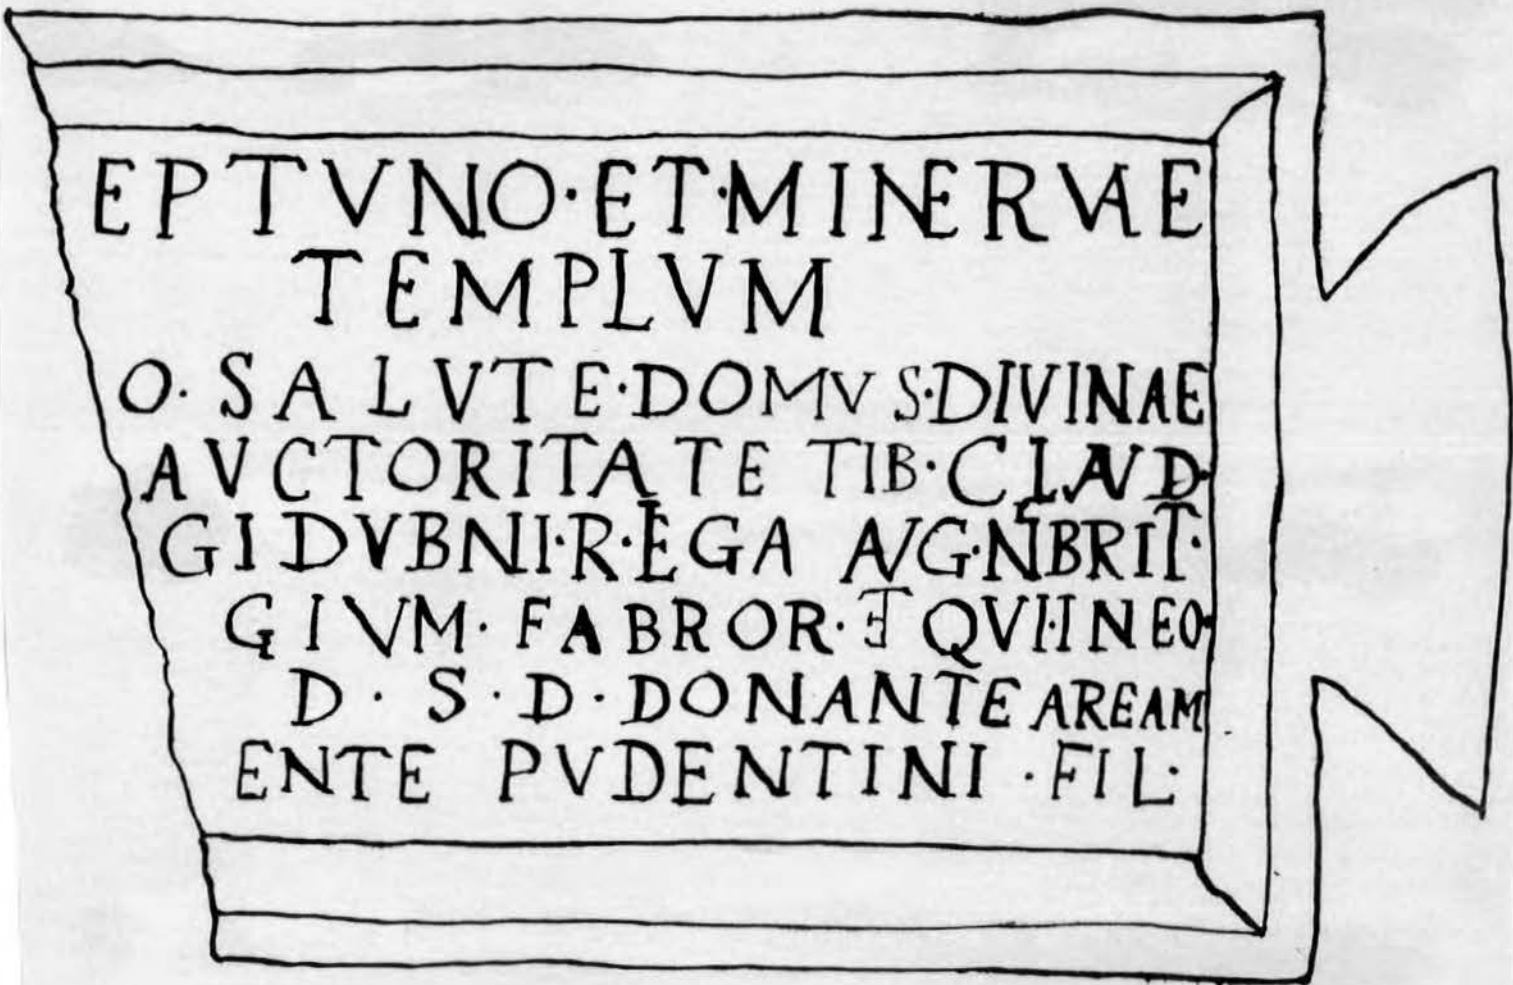 EPTVNO·ET·MINERVAE
TEMPLVM
O·SALVTE·DOMVS·DIVINAE
AVCTORITATE TIB·CLAVD·
GIDVBNI·R·EGA AVG·N BRIT·
GIVM·FABROR·ET QVI IN EO·
D·S·D·DONANTE AREAM
ENTE PVDENTINI·FIL·